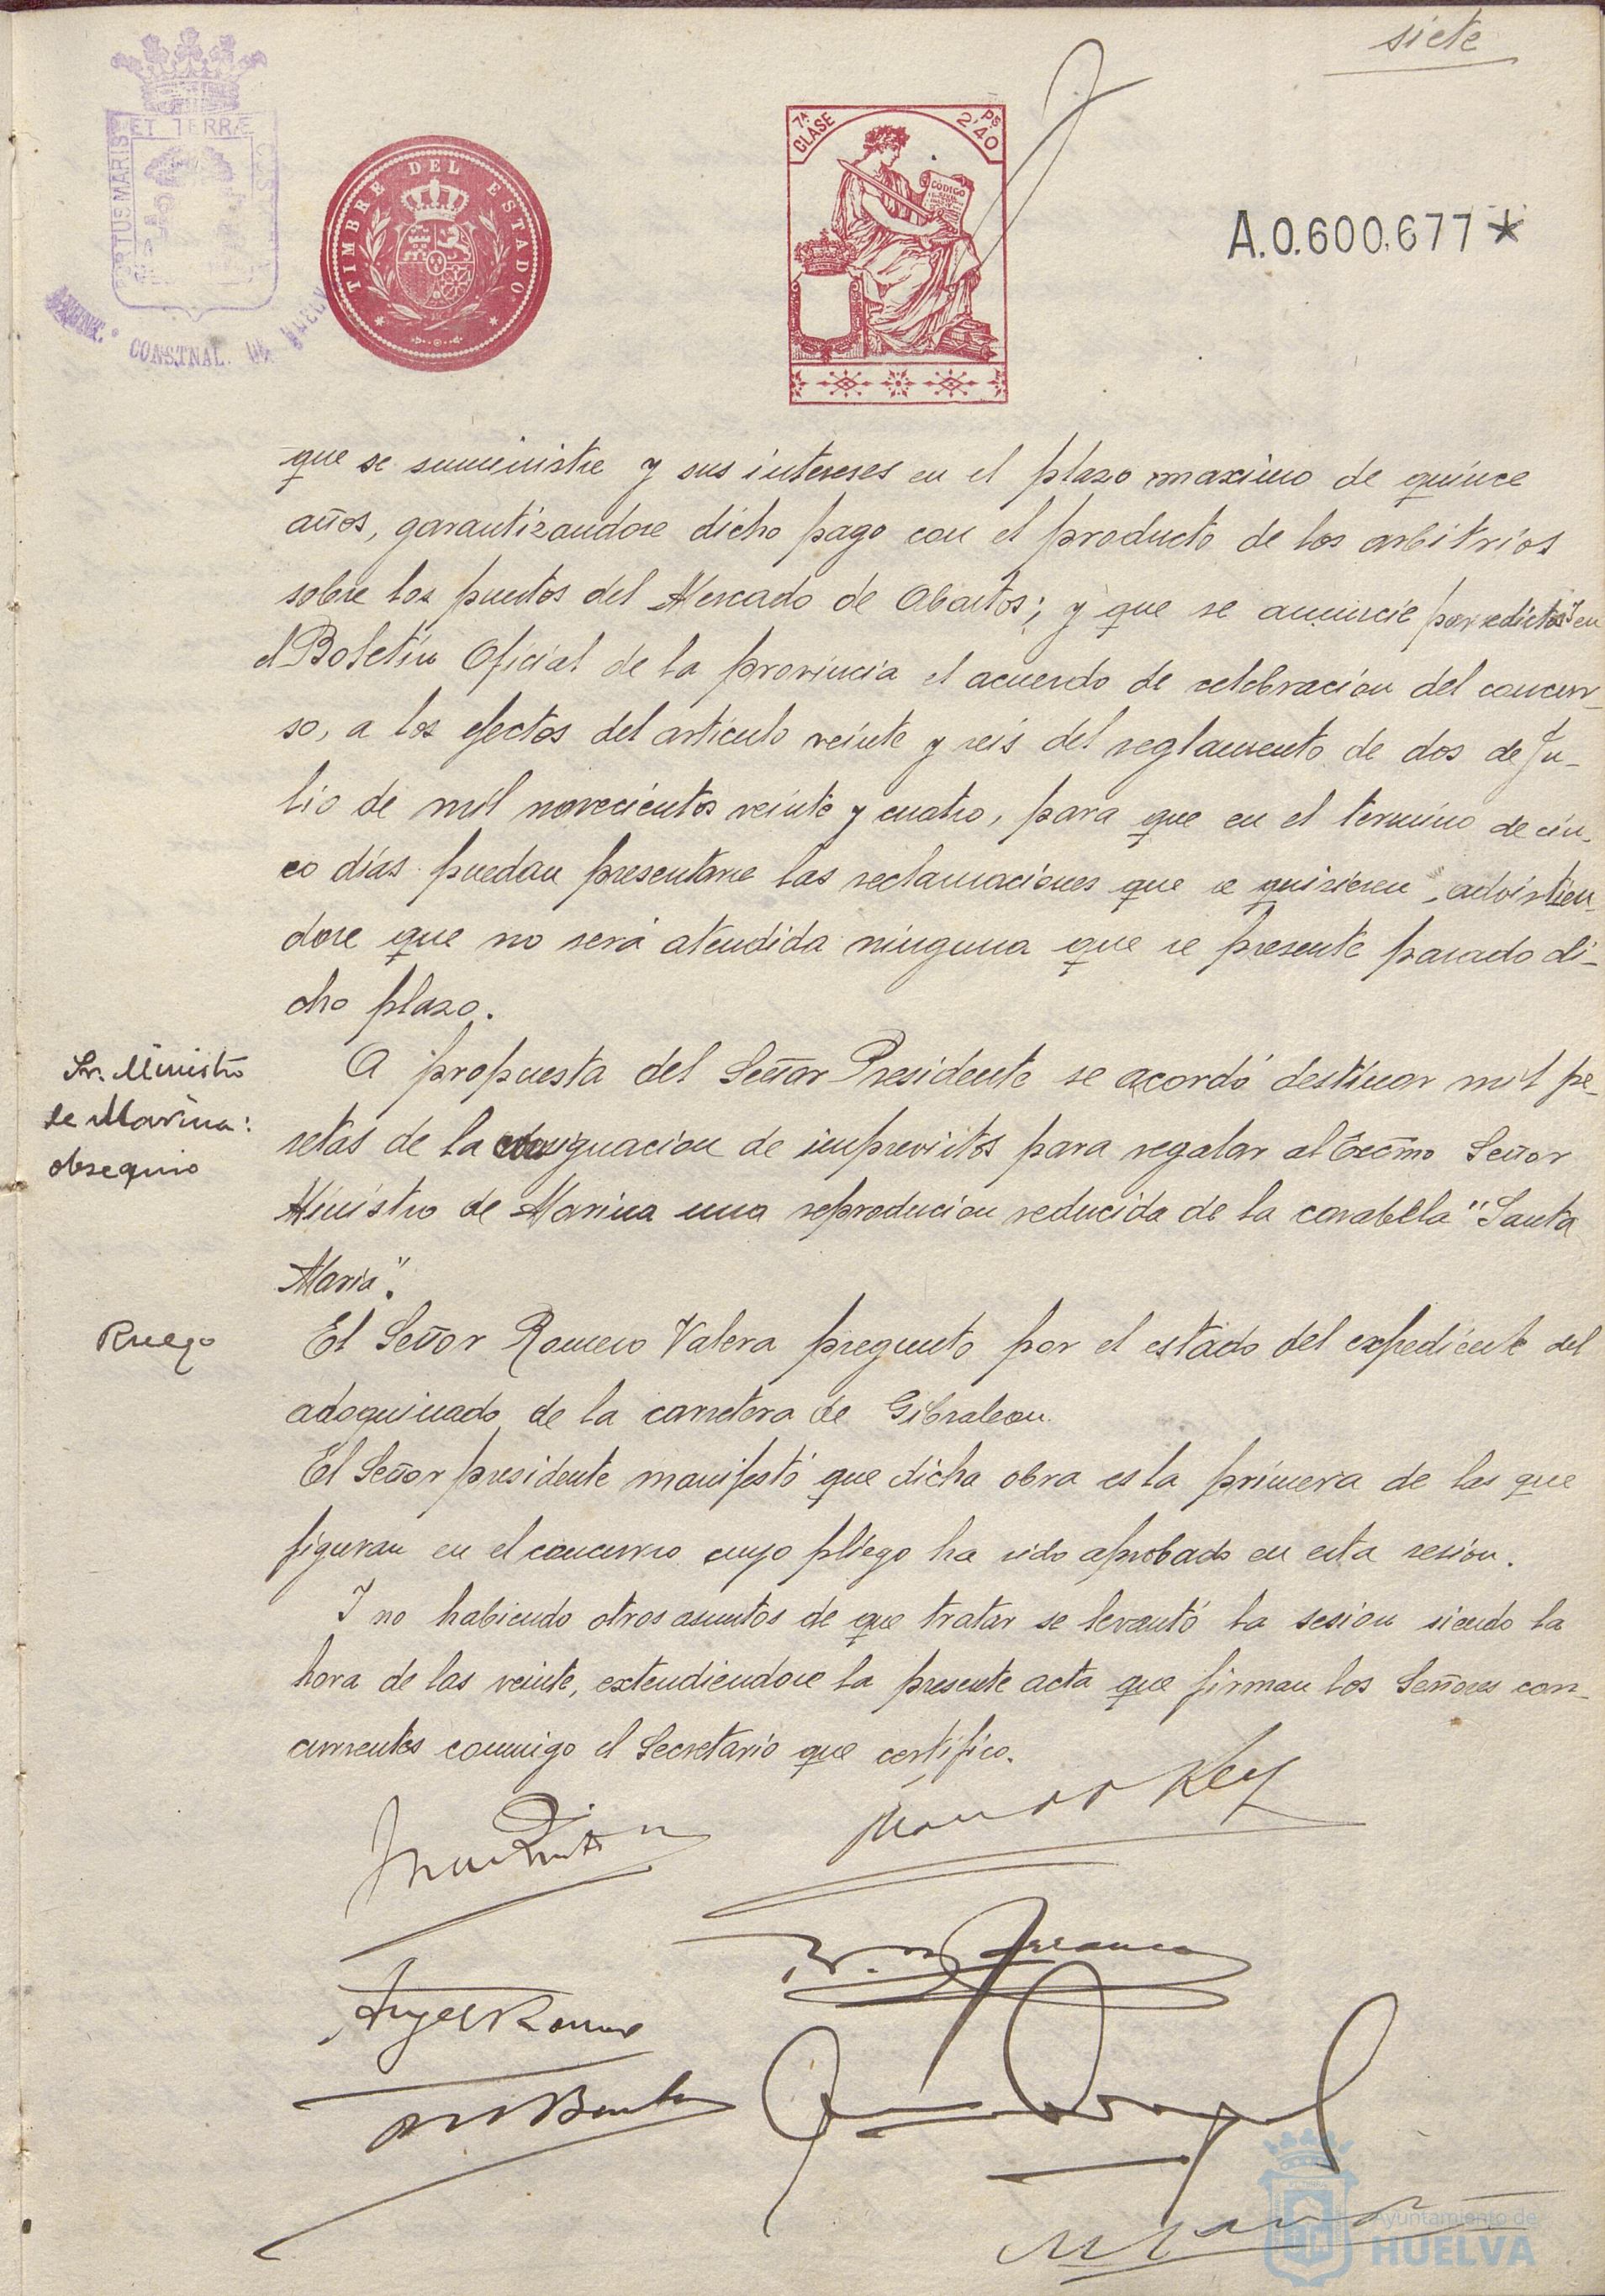 siete
PORTUS MARIS ET TERRÆ CUSTODIA
CONSTNAL.
TIMBRE DEL ESTADO
7ª CLASE
Ps 2'40
CODIGO
A.0.600.677*
que se suministre y sus intereses en el plazo maximo de quince
años, garantizandose dicho pago con el producto de los arbitrios
sobre los puestos del Mercado de Abastos; y que se anuncie por edictos y en
el Boletin Oficial de la provincia el acuerdo de celebracion del concur-
so, a los efectos del articulo veinte y seis del reglamento de dos de Ju-
lio de mil novecientos veinte y cuatro, para que en el termino de cin-
co días puedan presentarse las reclamaciones que se quisieren, advirtien-
dose que no será atendida ninguna que se presente pasado di-
cho plazo.
Sr. Ministro
de Marina:
obsequio
A propuesta del Señor Presidente se acordó destinar mil pe-
setas de la consignacion de imprevistos para regalar al Excmo Señor
Ministro de Marina una reproducion reducida de la carabela "Santa
Maria".
Ruego
El Señor Romero Valera pregunto por el estado del expediente del
adoquinado de la carretera de Gibraleon.
El Señor presidente manifestó que dicha obra es la primera de las que
figuran en el concurso cuyo pliego ha sido aprobado en esta sesion.
Y no habiendo otros asuntos de que tratar se levantó la sesion siendo la
hora de las veinte, extendiendose la presente acta que firman los Señores con-
currentes conmigo el Secretario que certifico.
Angel Romero
Ayuntamiento de
HUELVA